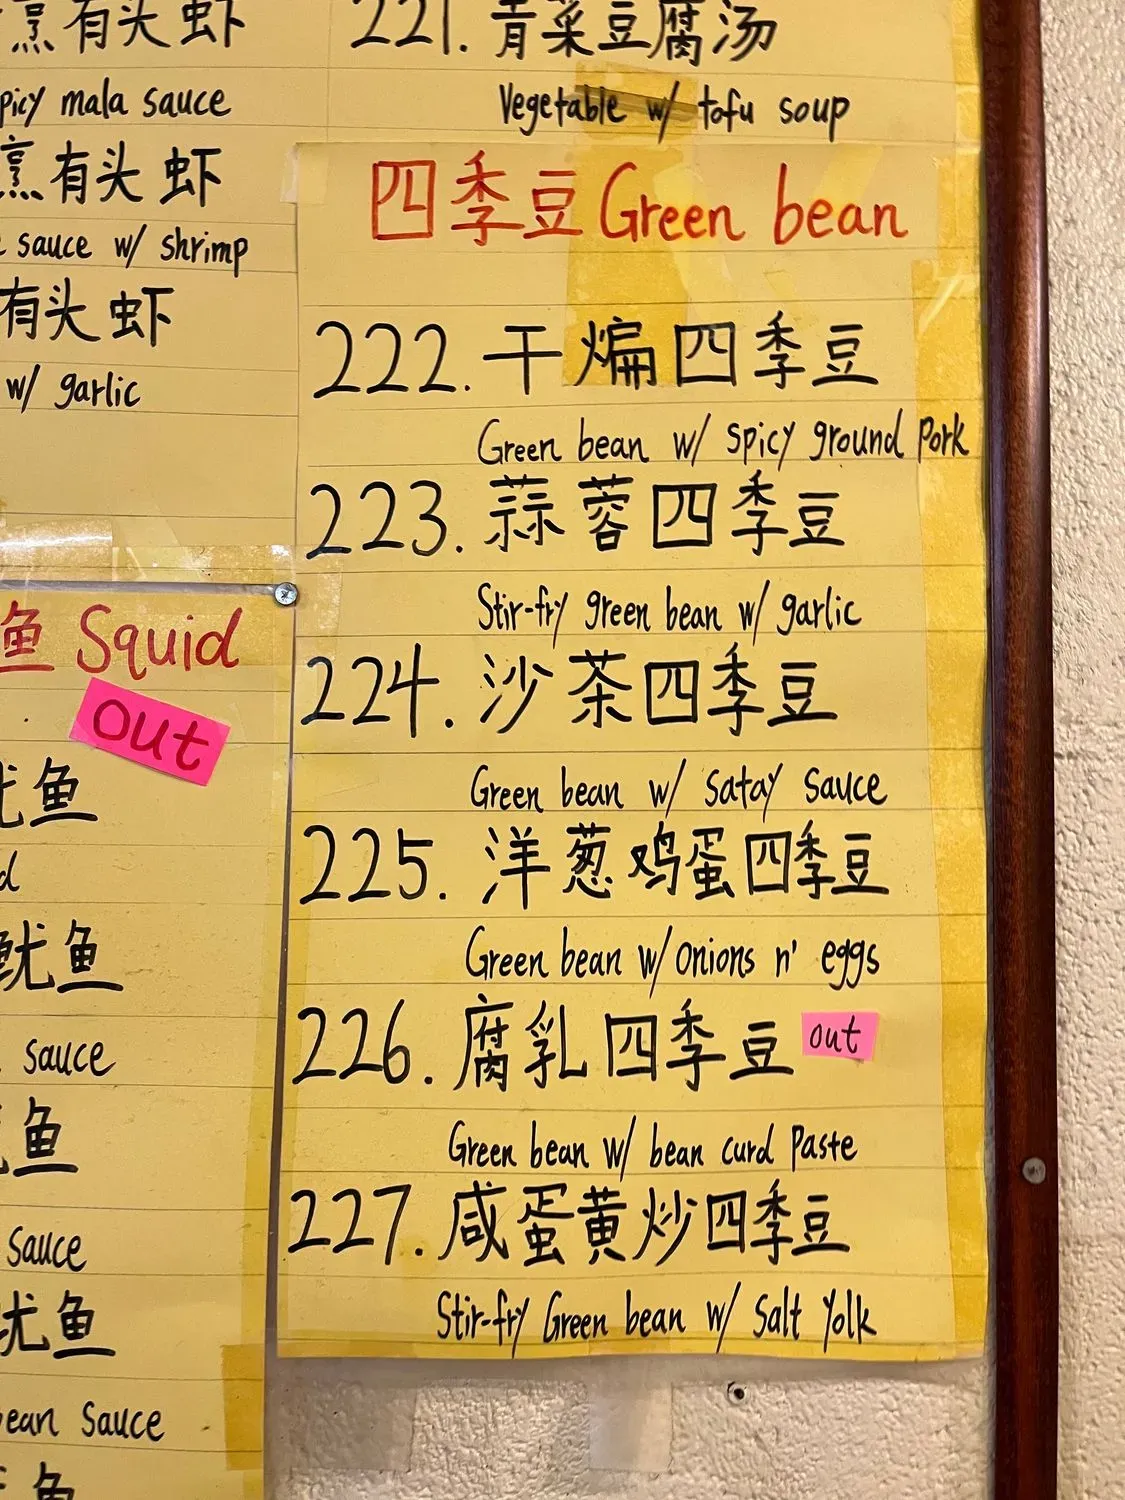 烹有头虾
picy mala sauce
烹有头虾
sauce w/ shrimp
有头虾
w/ garlic
鱼 Squid
out
鱼
鱿鱼
sauce
鱼
sauce
鱼
bean Sauce
鱼
221. 青菜豆腐汤
Vegetable w/ tofu soup
四季豆 Green bean
222. 干煸四季豆
Green bean w/ spicy ground pork
223. 蒜蓉四季豆
Stir-fry green bean w/ garlic
224. 沙茶四季豆
Green bean w/ satay sauce
225. 洋葱鸡蛋四季豆
Green bean w/ onions n' eggs
226. 腐乳四季豆 out
Green bean w/ bean curd Paste
227. 咸蛋黄炒四季豆
Stir-fry Green bean w/ Salt Yolk